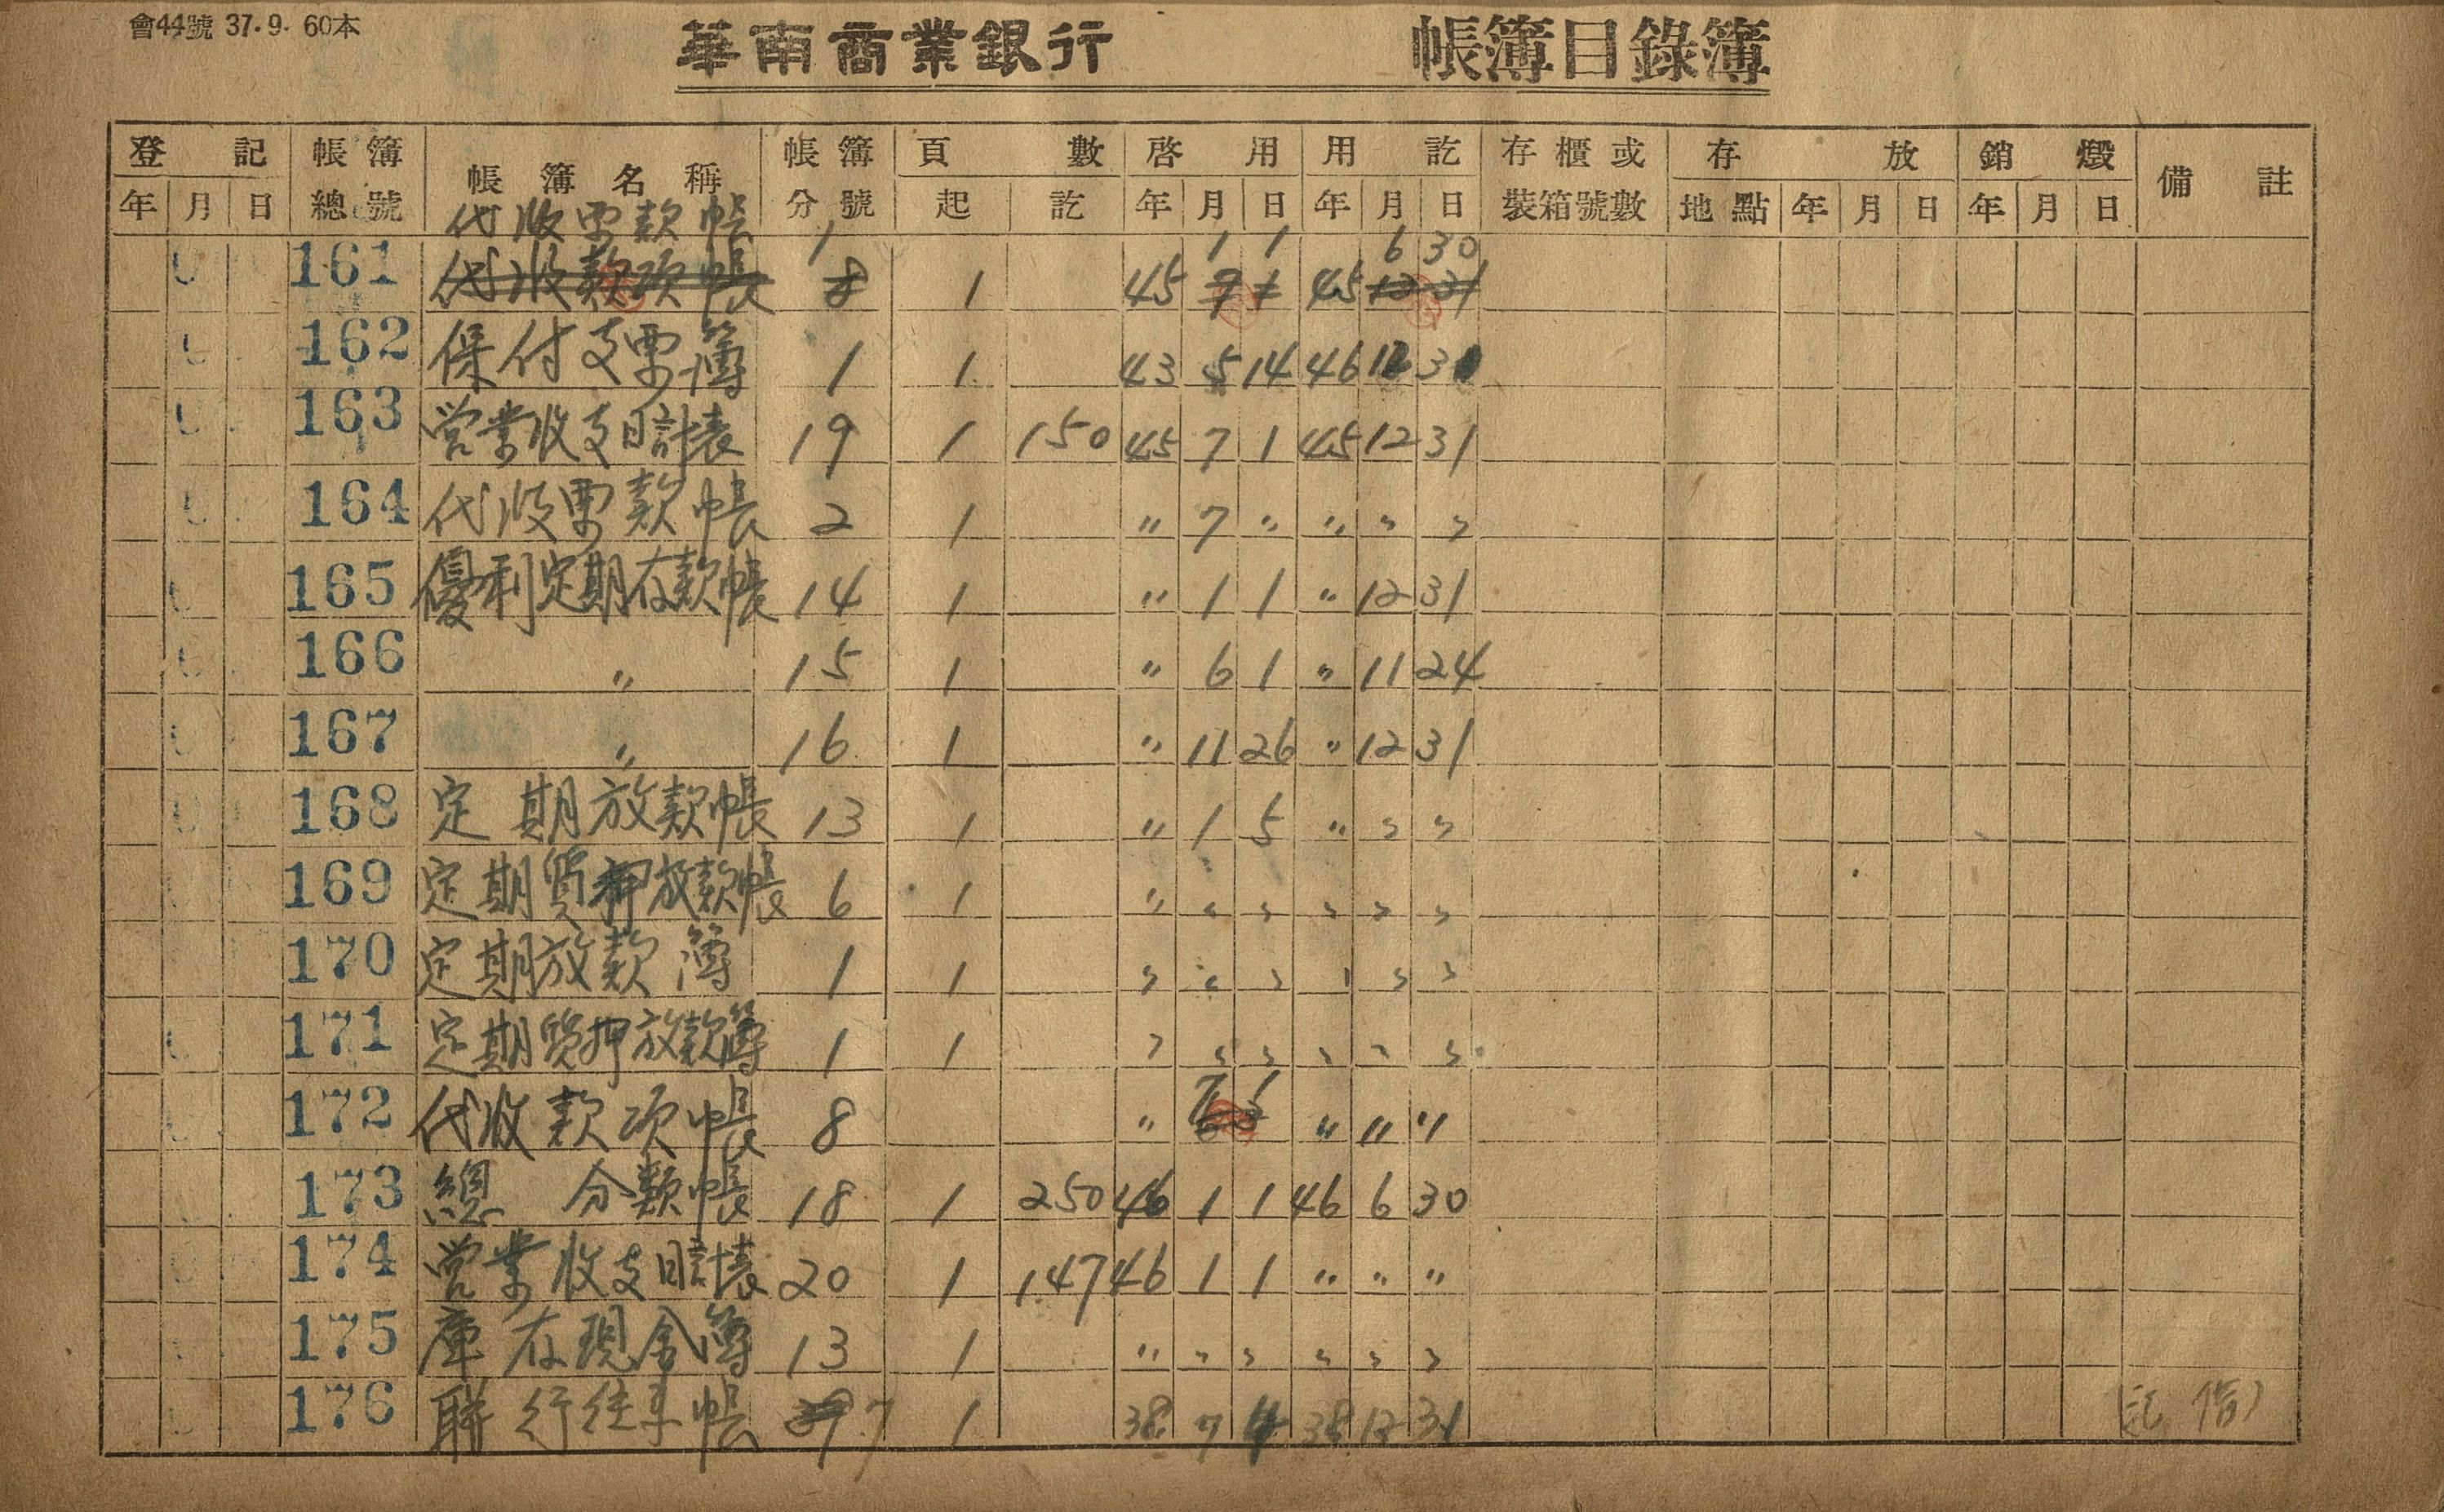 會44號 37.9. 60本
華南商業銀行 帳簿目錄簿
登記 帳簿總號 帳簿名稱 帳簿分號 頁數 啓用 用訖 存櫃或裝箱號數 存放 銷燬 備註
年 月 日 起 訖 年 月 日 年 月 日 地點 年 月 日 年 月 日
代收票款帳 1 1 1 6 30
161 代收款項帳 8 1 45 7 1 45 12 31
162 保付支票簿 1 1 43 5 14 46 12 31
163 営業收支日計表 19 1 150 45 7 1 45 12 31
164 代收票款帳 2 1 〃 7 〃 〃 〃 〃
165 優利定期存款帳 14 1 〃 1 1 〃 12 31
166 〃 15 1 〃 6 1 〃 11 24
167 〃 16 1 〃 11 26 〃 12 31
168 定期放款帳 13 1 〃 1 5 〃 〃 〃
169 定期質押放款帳 6 1 〃 〃 〃 〃 〃 〃
170 定期放款簿 1 1 〃 〃 〃 〃 〃 〃
171 定期質押放款簿 1 1 〃 〃 〃 〃 〃 〃
172 代收款項帳 8 〃 7 1 〃 〃 〃
173 總分類帳 18 1 250 46 1 1 46 6 30
174 営業收支日計表 20 1 147 46 1 1 〃 〃 〃
175 庫存現金簿 13 1 〃 〃 〃 〃 〃 〃
176 聯行往來帳 7 1 38 7 38 12 31